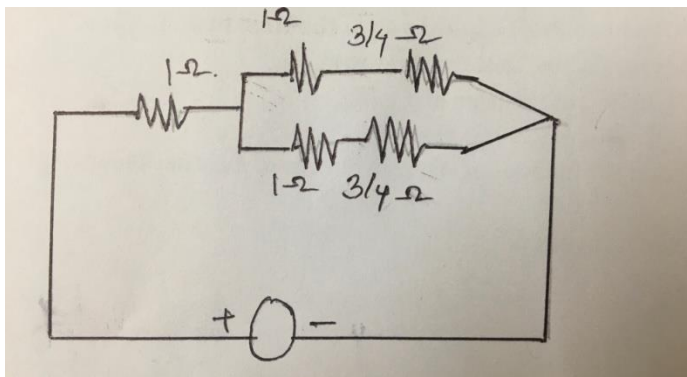 1Ω
3/4 Ω
1Ω.
1Ω
3/4 Ω
+
−